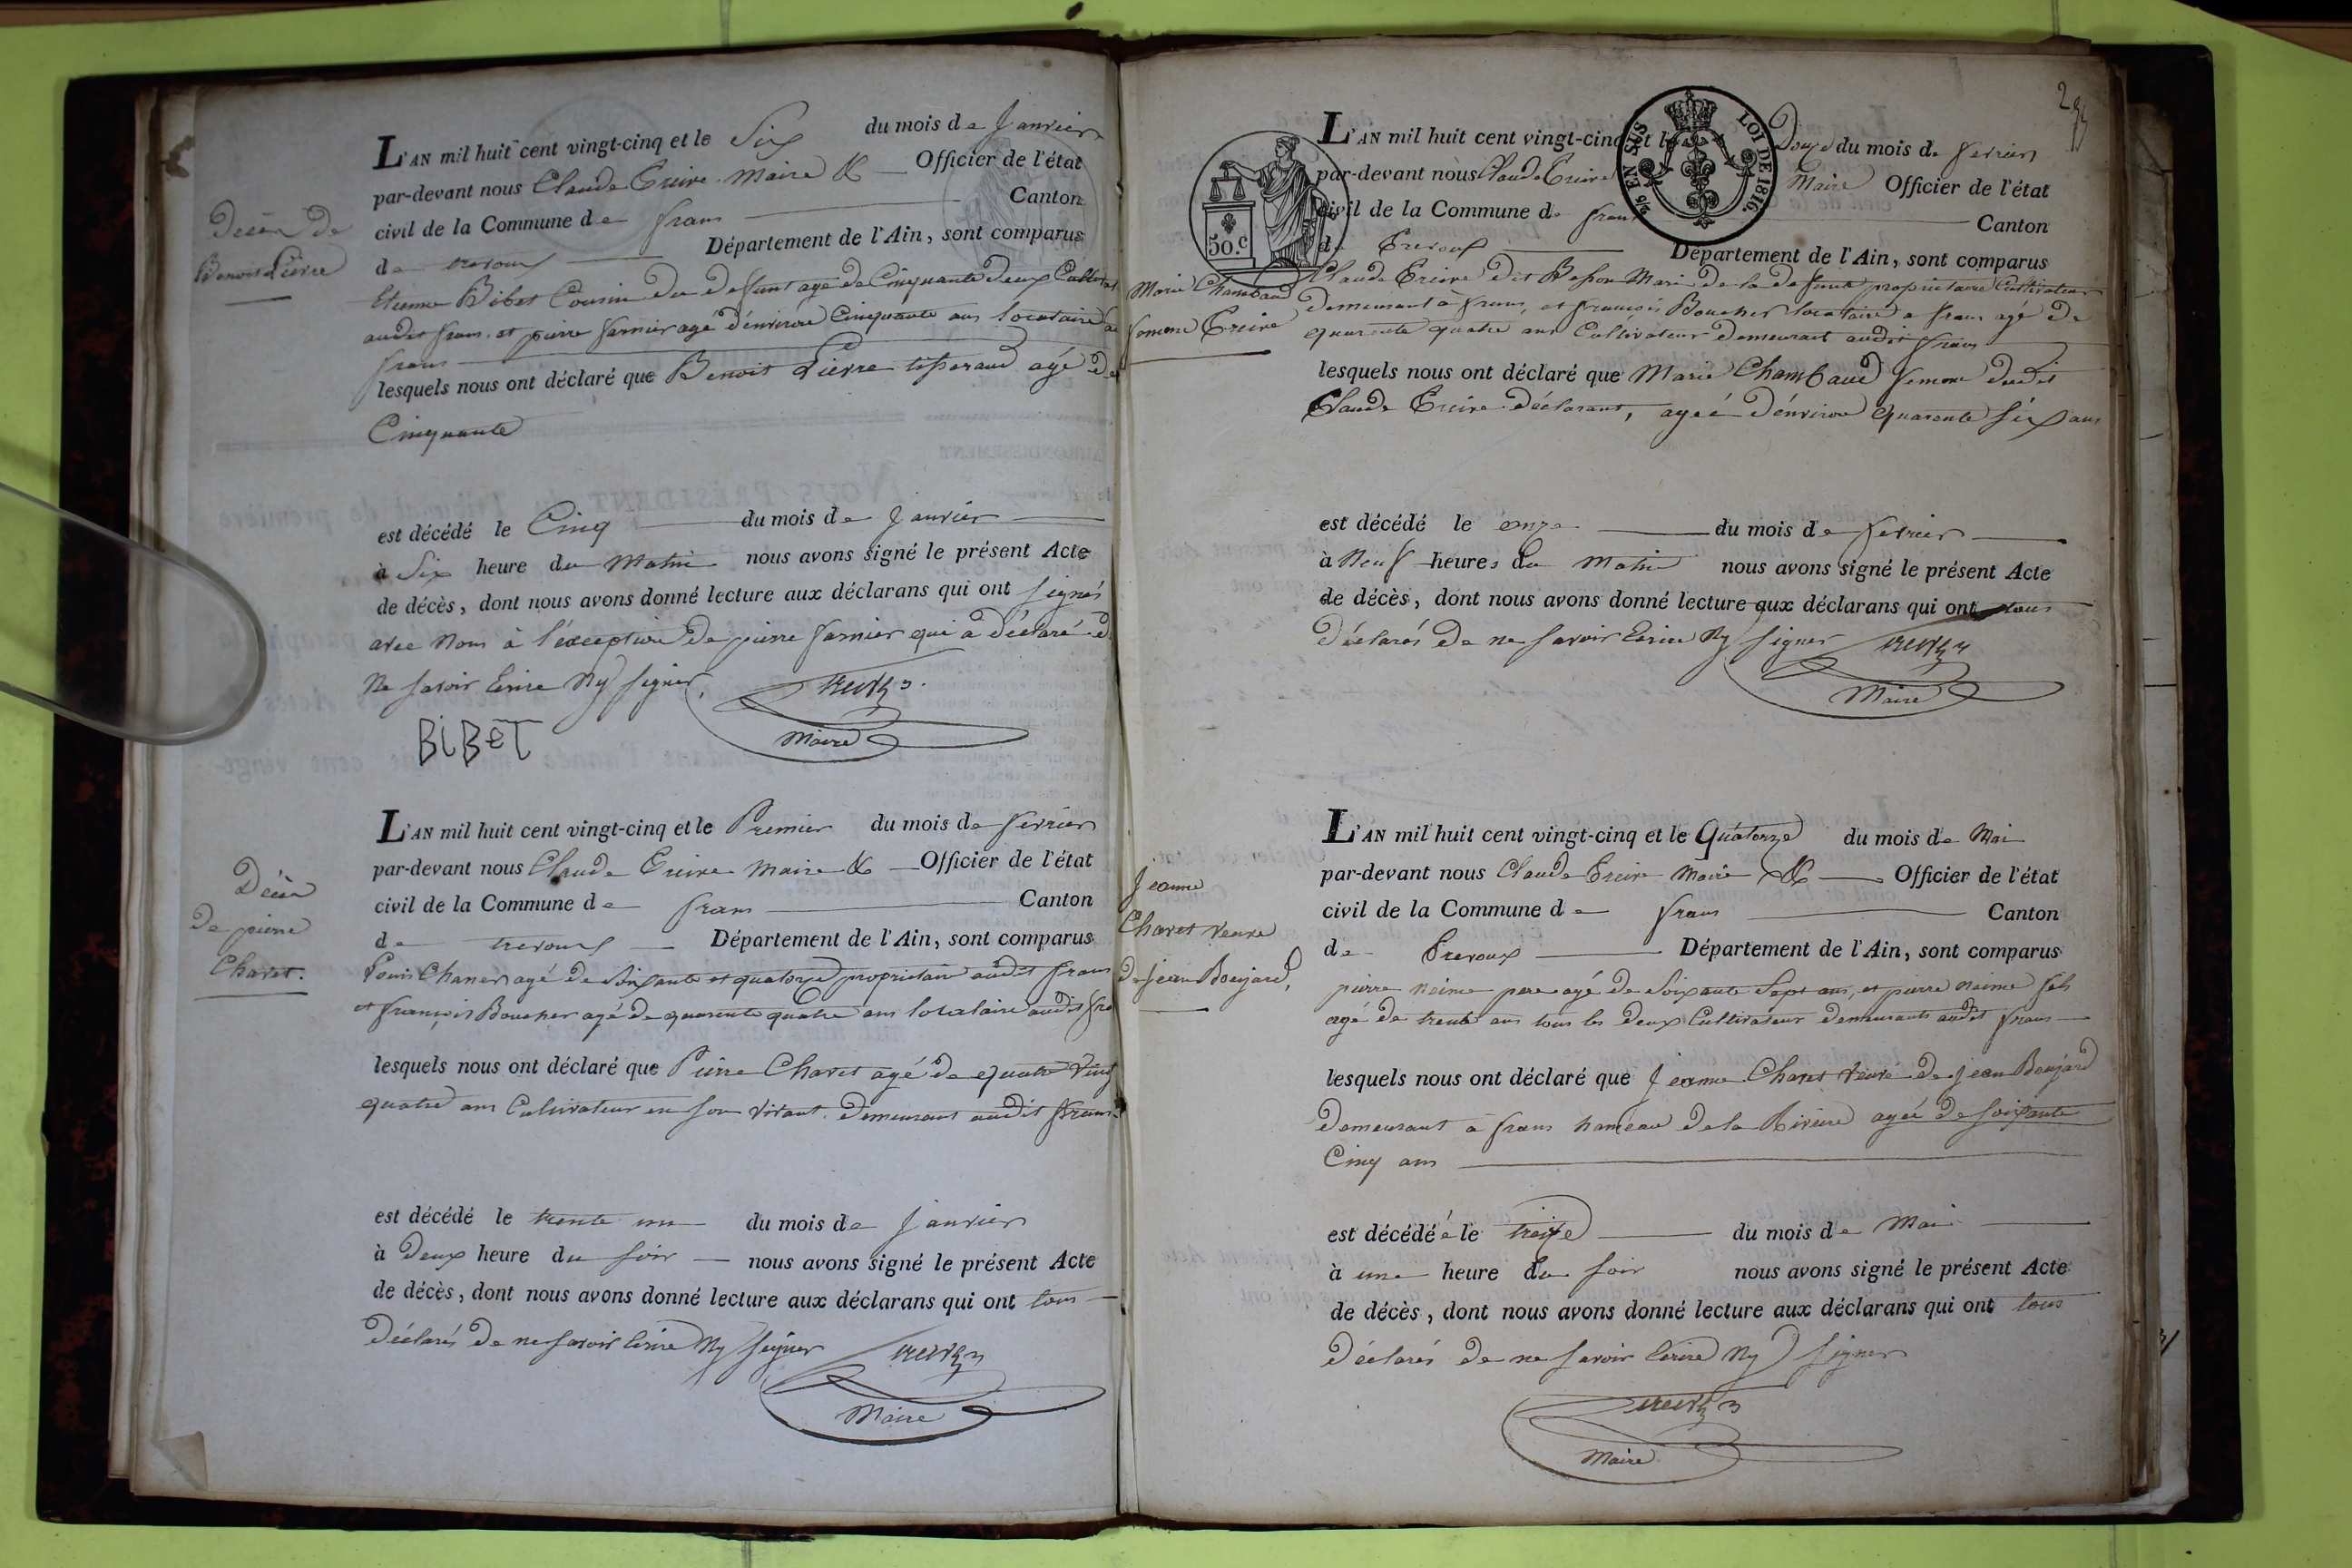 L'AN mil huit cent vingt-cinq et le Six du mois de Janvier
par-devant nous Claude Treive Maire & Officier de l'état
civil de la Commune de frans Canton
de trevoux Département de l'Ain, sont comparus
Etienne Bibet Cousin du defunt agé de Cinquante deux
audit frans. et pierre farnier agé d'environ Cinquante ans locataire
frans
lesquels nous ont déclaré que Benoit Lièvre tisserand agé de
Cinquante
est décédé le Cinq du mois de Janvier
à Six heure du Matin nous avons signé le présent Acte
de décès, dont nous avons donné lecture aux déclarans qui ont signés
avec Nous à l'éxception de pierre farnier qui a déclaré
Ne savoir Ecrire Ny signer,
Maire
BiBeT
Décès de
Benoit Lièvre
L'AN mil huit cent vingt-cinq et le Premier du mois de fevrier
par-devant nous Claude Treive Maire & Officier de l'état
civil de la Commune de frans Canton
de trevoux Département de l'Ain, sont comparus
Louis Chaner agé de Soixante et quatorze proprietaire audit frans
et françois Boucher agé de quarente quatre ans locataire audit
lesquels nous ont déclaré que Pierre Charet agé de quatre Vingt
quatre ans Cultivateur en son vivant. demeurant audit frans.
est décédé le trente un du mois de Janvier
à Deux heure du soir nous avons signé le présent Acte
de décès, dont nous avons donné lecture aux déclarans qui ont tous
Déclarés de ne savoir Ecrire Ny signer
Maire
Décès
De pierre
Charet.
L'AN mil huit cent vingt-cinq et le Douze du mois de fevrier
par-devant nous Claude Treive Maire Officier de l'état
civil de la Commune de frans Canton
de Trevoux Département de l'Ain, sont comparus
Claude Treive dit Mari de la defunte proprietaire Cultivateur
demeurant a frans, et françois Boucher locataire a frans agé de
quarente quatre ans Cultivateur demeurant audit frans
lesquels nous ont déclaré que Marie Chambaud femme dudit
Claude Treive déclarant, ageé d'énviron quarente six ans
est décédé le onze du mois de fevrier
à Neuf heures du Matin nous avons signé le présent Acte
de décès, dont nous avons donné lecture aux déclarans qui ont tous
déclarés de ne savoir Ecrire Ny signer
Maire
Marie Chambaud
femme Treive
50.c
2/5 EN SUS
LOI DE 1816.
L'AN mil huit cent vingt-cinq et le Quatorze du mois de Mai
par-devant nous Claude Treive Maire & Officier de l'état
civil de la Commune de frans Canton
de Trevoux Département de l'Ain, sont comparus
pierre Neime pere agé de Soixante Sept ans, et pierre Neime fils
agé de trente ans tous les deux Cultivateur demeurants audit frans
lesquels nous ont déclaré que Jeanne Charet Veuve de Jean Boujard
demeurant a frans hameau de la Riviere agée de soixante
Cinq ans
est décédé é le treize du mois de Mai
à une heure du soir nous avons signé le présent Acte
de décès, dont nous avons donné lecture aux déclarans qui ont tous
Déclarés de ne savoir Ecrire Ny signer
Maire
Jeanne
Charet veuve
de Jean Boujard,